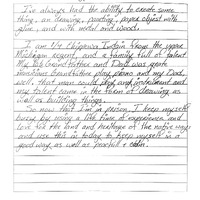 I've always had the ability to create some
thing, an drawing, painting, paper object with
glue, and with metal and wood.
I am 1/2 Chippewa Indian from the upper
Michigan regent, and a family full of talent
My Grandfather and Dad was great
Grandfather play piano and my Dad,
well, that man could play any instrument and
my talent came in the form of drawing as
well as building things.
So now that I'm in prison, I keep myself
busy by using a life time of experience and
love for the land and heritage of the native ways
and use this in today to keep myself in a
good way, as well as peacful + calm.